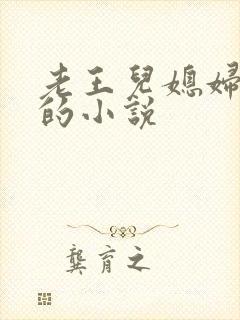 老王兒媳婦
的小說
龔育之